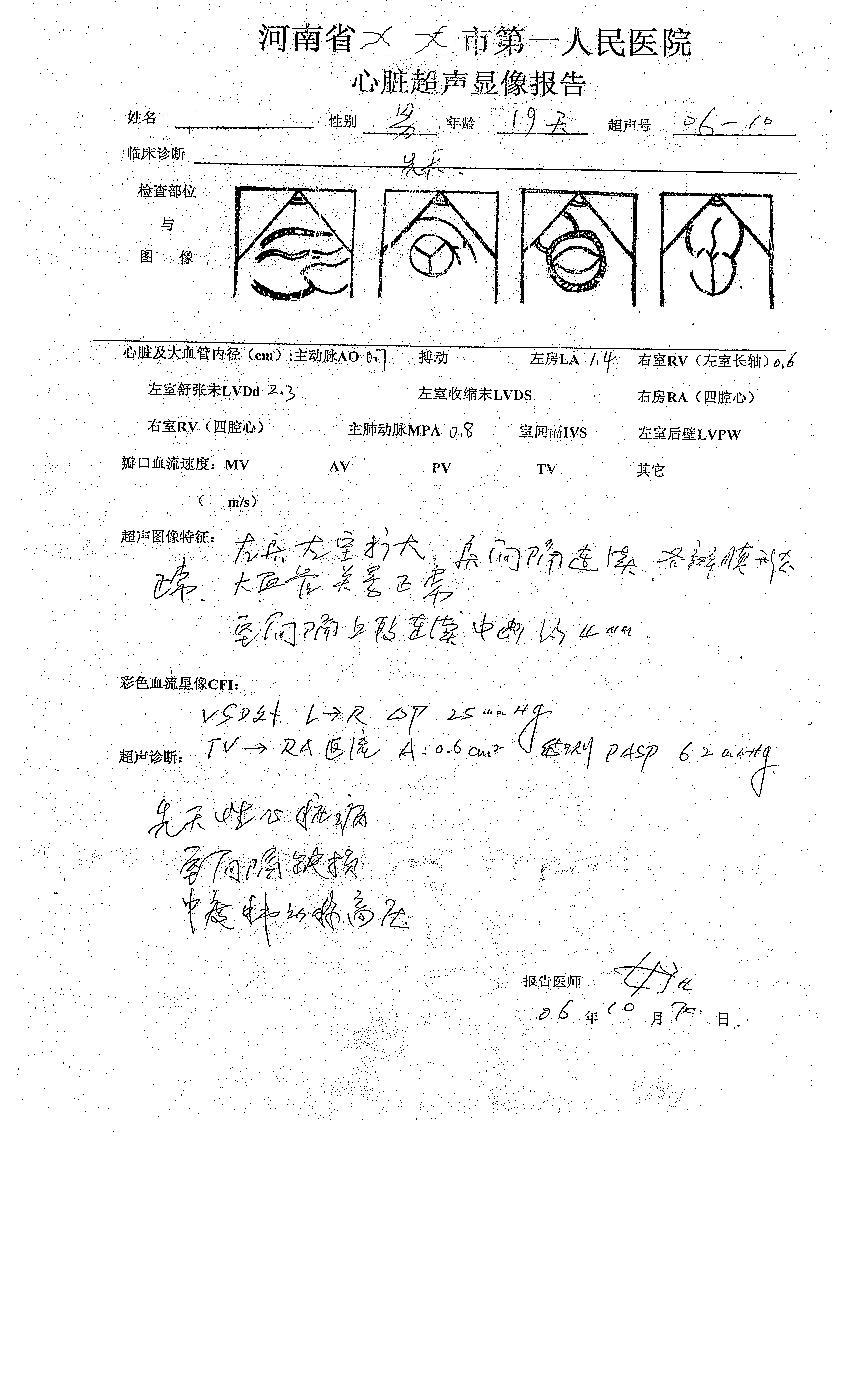 河南省××市第一人民医院
心脏超声显像报告
姓名 性别 男 年龄 19天 超声号 06-10
临床诊断 先天
检查部位
与
图 像
心脏及大血管内径（cm）:主动脉AO 0.7 搏动 左房LA 1.4 右室RV（左室长轴）0.6
左室舒张末LVDd 2.3 左室收缩末LVDS 右房RA（四腔心）
右室RV（四腔心） 主肺动脉MPA 0.8 室间隔IVS 左室后壁LVPW
瓣口血流速度：MV AV PV TV 其它
（ m/s）
超声图像特征： 左房左室扩大，房间隔连续，各瓣膜形态
正常．大血管关系正常
室间隔上段连续中断约4mm
彩色血流显像CFI：
VSD处 L→R ΔP 25mmHg
超声诊断： TV→RA 返流 A:0.6cm² 估测 PASP 62mmHg
先天性心脏病
室间隔缺损
中度肺动脉高压
报告医师
06 年 10 月 日